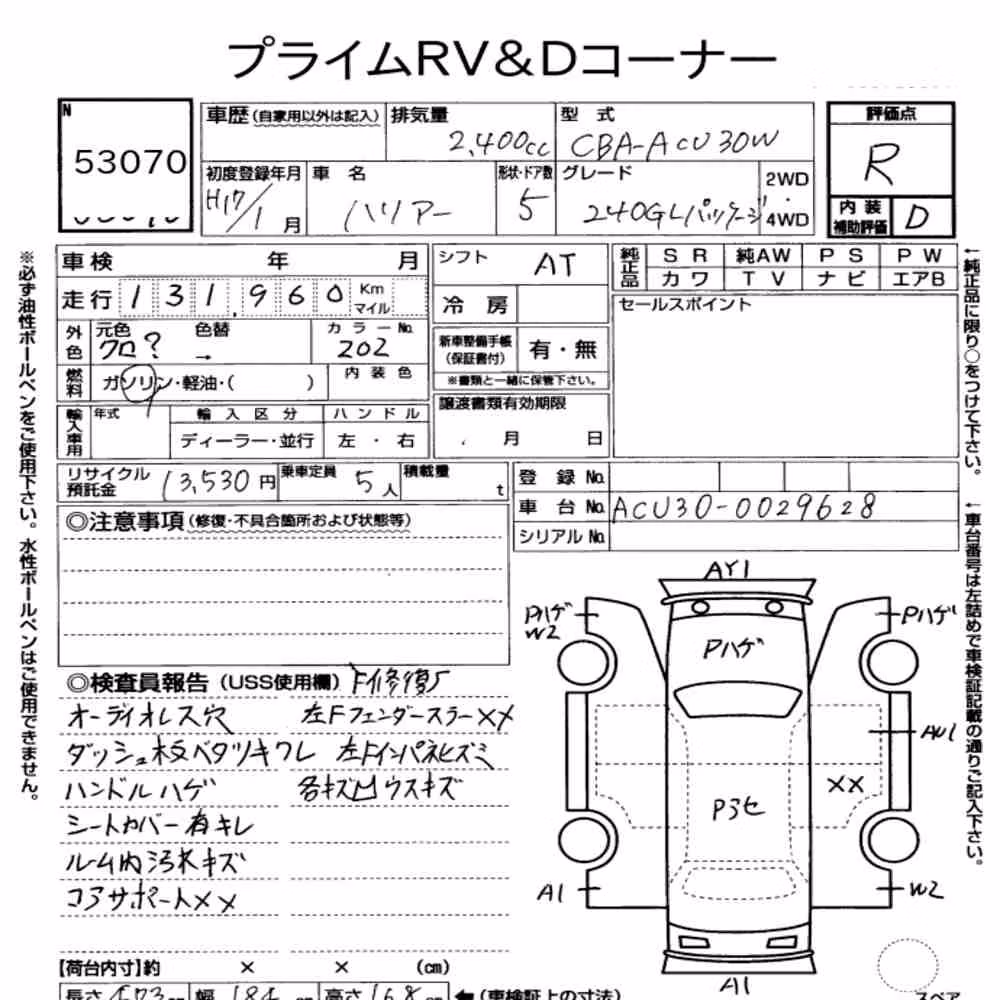 プライムRV&Dコーナー
N
53070
車歴 (自家用以外は記入) 排気量 2,400cc 型式 CBA-ACU30W
評価点 R
初度登録年月 H17/1月 車名 ハリアー 形状・ドア数 5 グレード 240GLパッケージ 2WD・4WD
内装補助評価 D
車検 年 月
シフト AT
純正品 SR 純AW PS PW
カワ TV ナビ エアB
走行 131,960 Km マイル
冷房
セールスポイント
外色 元色 クロ? 色替 → カラーNo. 202
新車整備手帳 (保証書付) 有・無
※書類と一緒に保管下さい。
燃料 ガソリン・軽油・( ) 内装色
譲渡書類有効期限
月 日
輸入車用 年式 輸入区分 ハンドル
ディーラー・並行 左・右
リサイクル預託金 13,530円 乗車定員 5人 積載量 t
登録No.
車台No. ACU30-0029628
シリアルNo.
◎注意事項 (修復・不具合箇所および状態等)
◎検査員報告 (USS使用欄)
オーディオレス穴 左FフェンダーステーXX
ダッシュ板ベタツキワレ 左Fインパネヒズミ
ハンドルハゲ 各キズ凹ウスキズ
シートカバー有キレ
ルーム内汚れキズ
コアサポートXX
【荷台内寸】約 × × (cm)
長さ 473 cm 幅 184 cm 高さ 168 ←(車検証上の寸法)
AY1
Pハゲ
W2
Pハゲ
Pハゲ
AU1
XX
P3セ
A1
W2
A1
スペア
※必ず油性ボールペンをご使用下さい。水性ボールペンはご使用できません。
←純正品に限り○をつけて下さい。
←車台番号は左詰めで車検証記載の通りご記入下さい。